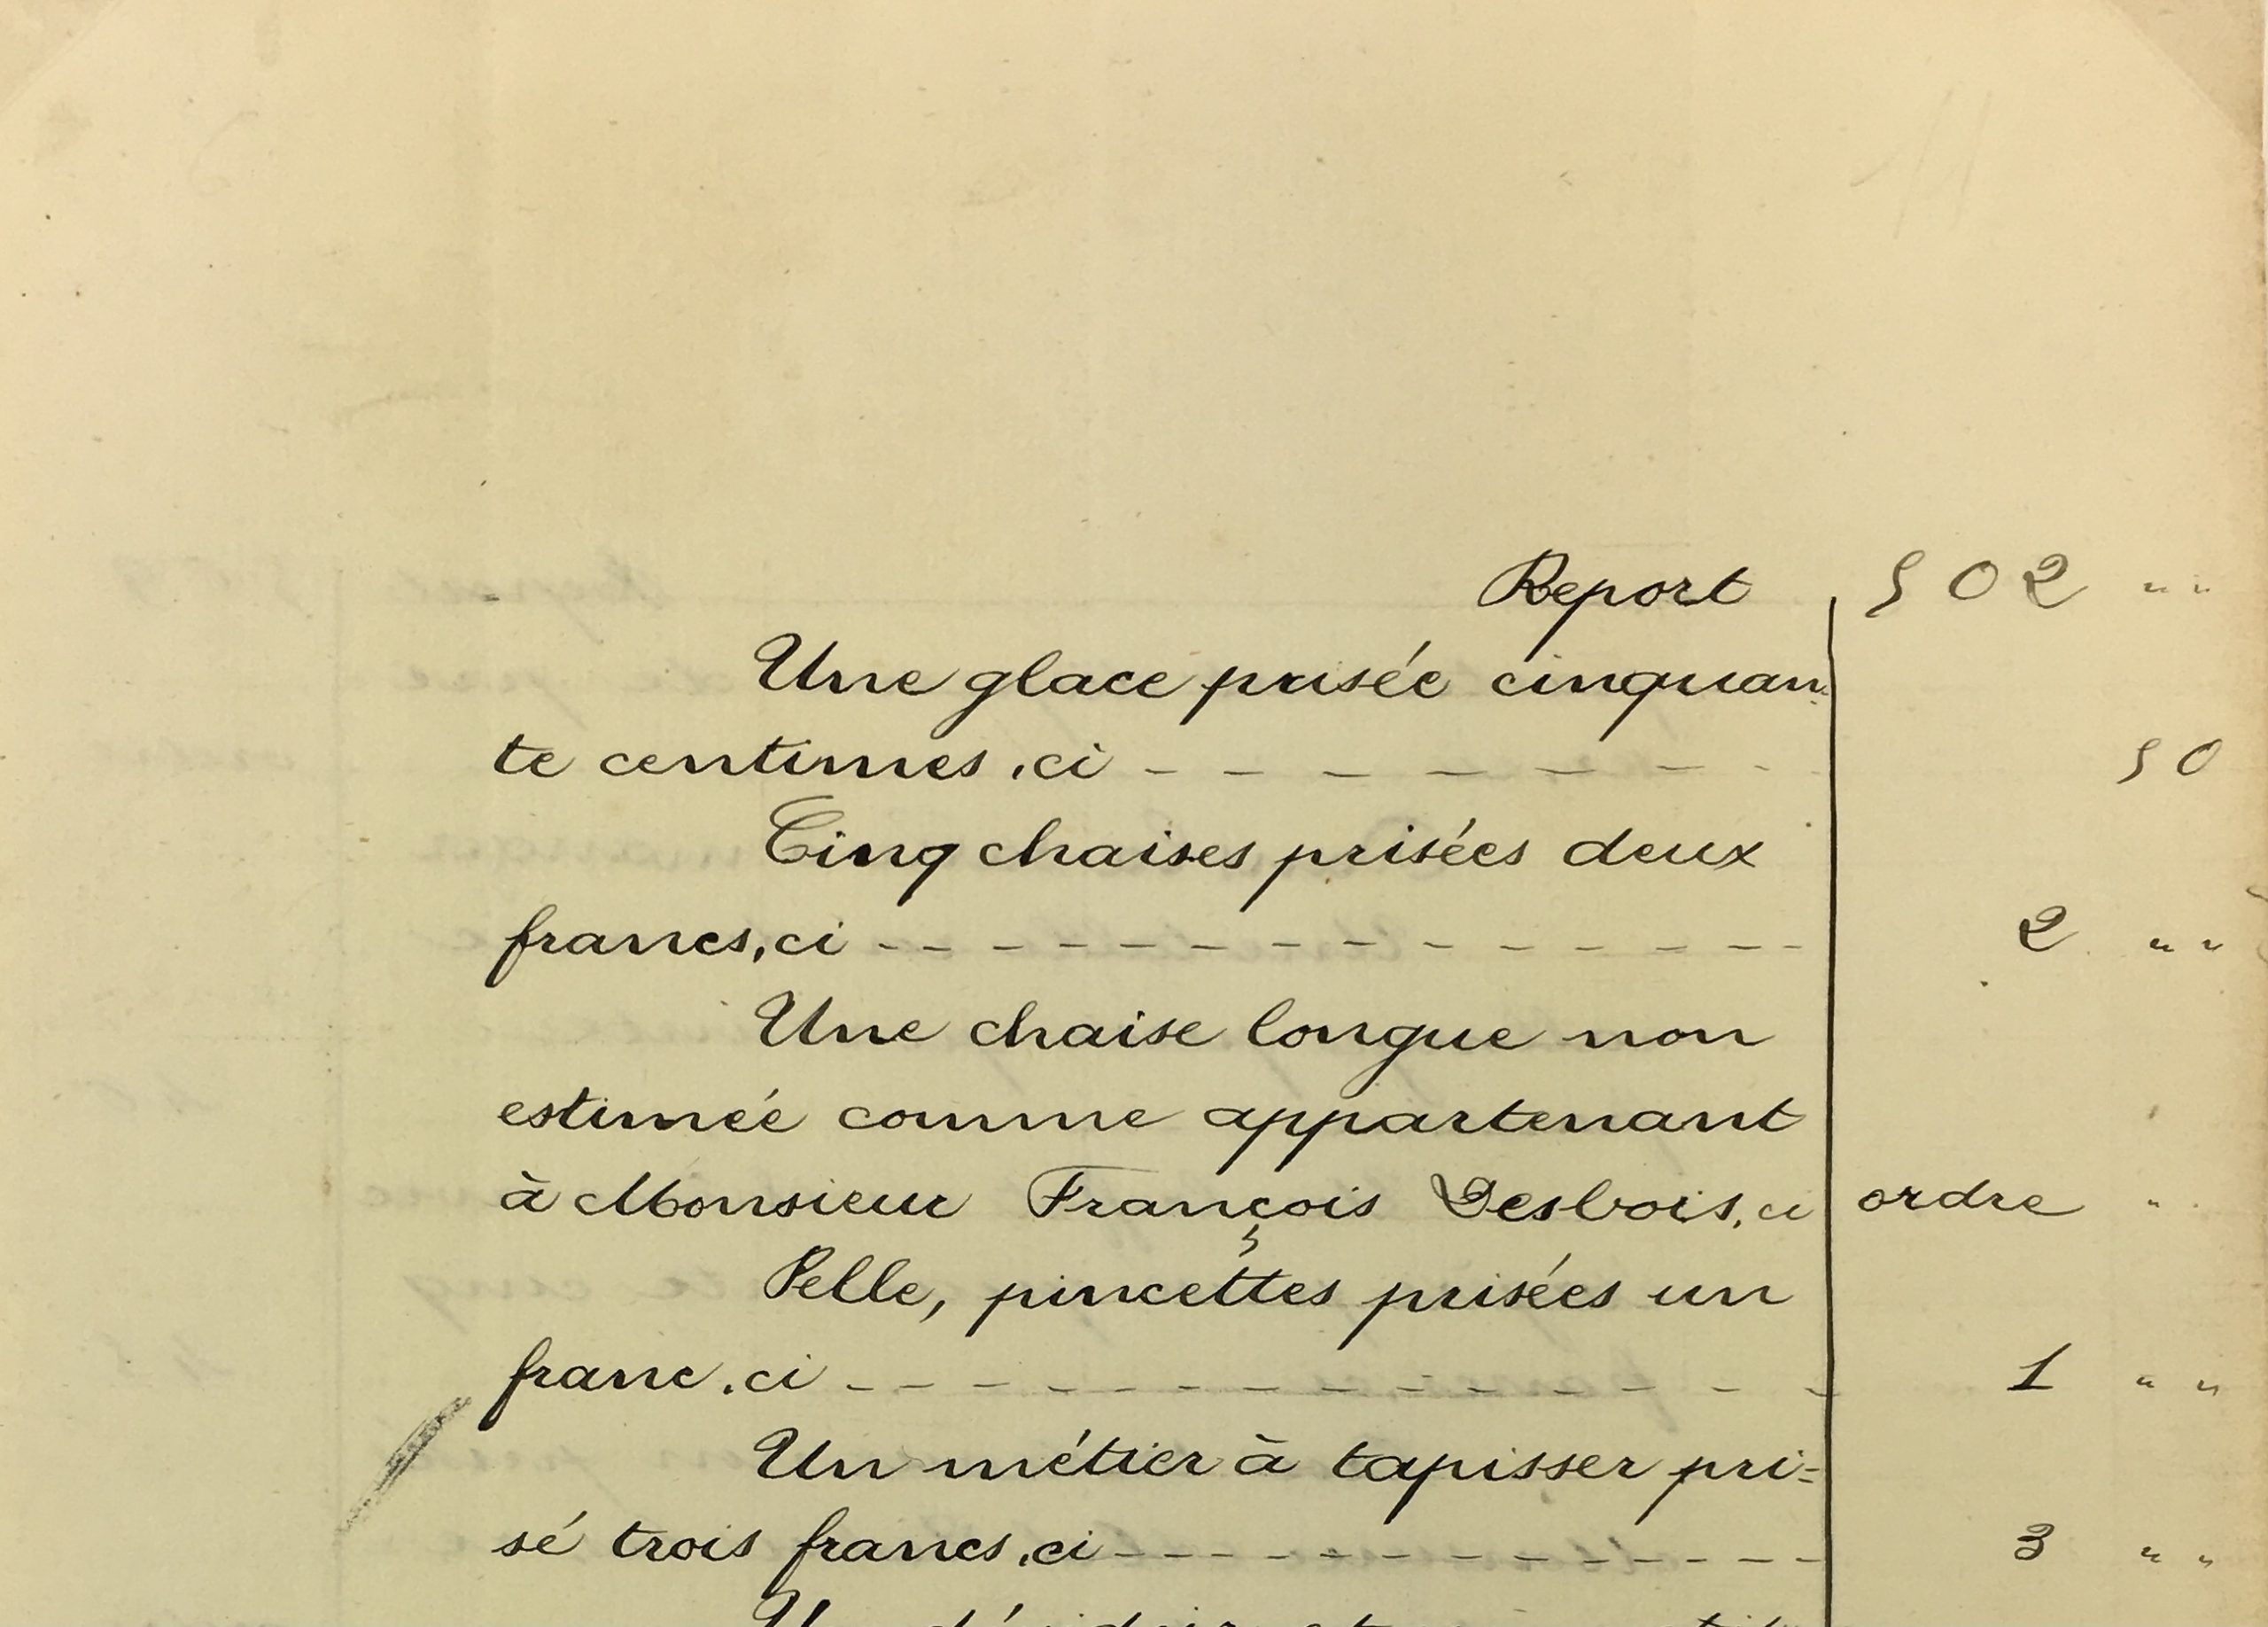 Report 502 " "
Une glace prisée cinquan-
te centimes, ci - - - - - - - 50
Cinq chaises prisées deux
francs, ci - - - - - - - - - - - - - - - 2 " "
Une chaise longue non
estimée comme appartenant
à Monsieur François Desbois, ci ordre "
Pelle, pincettes prisées un
franc, ci - - - - - - - - - - - - - - - 1 " "
Un métier à tapisser pri=
sé trois francs, ci - - - - - - - - - - - - 3 " "